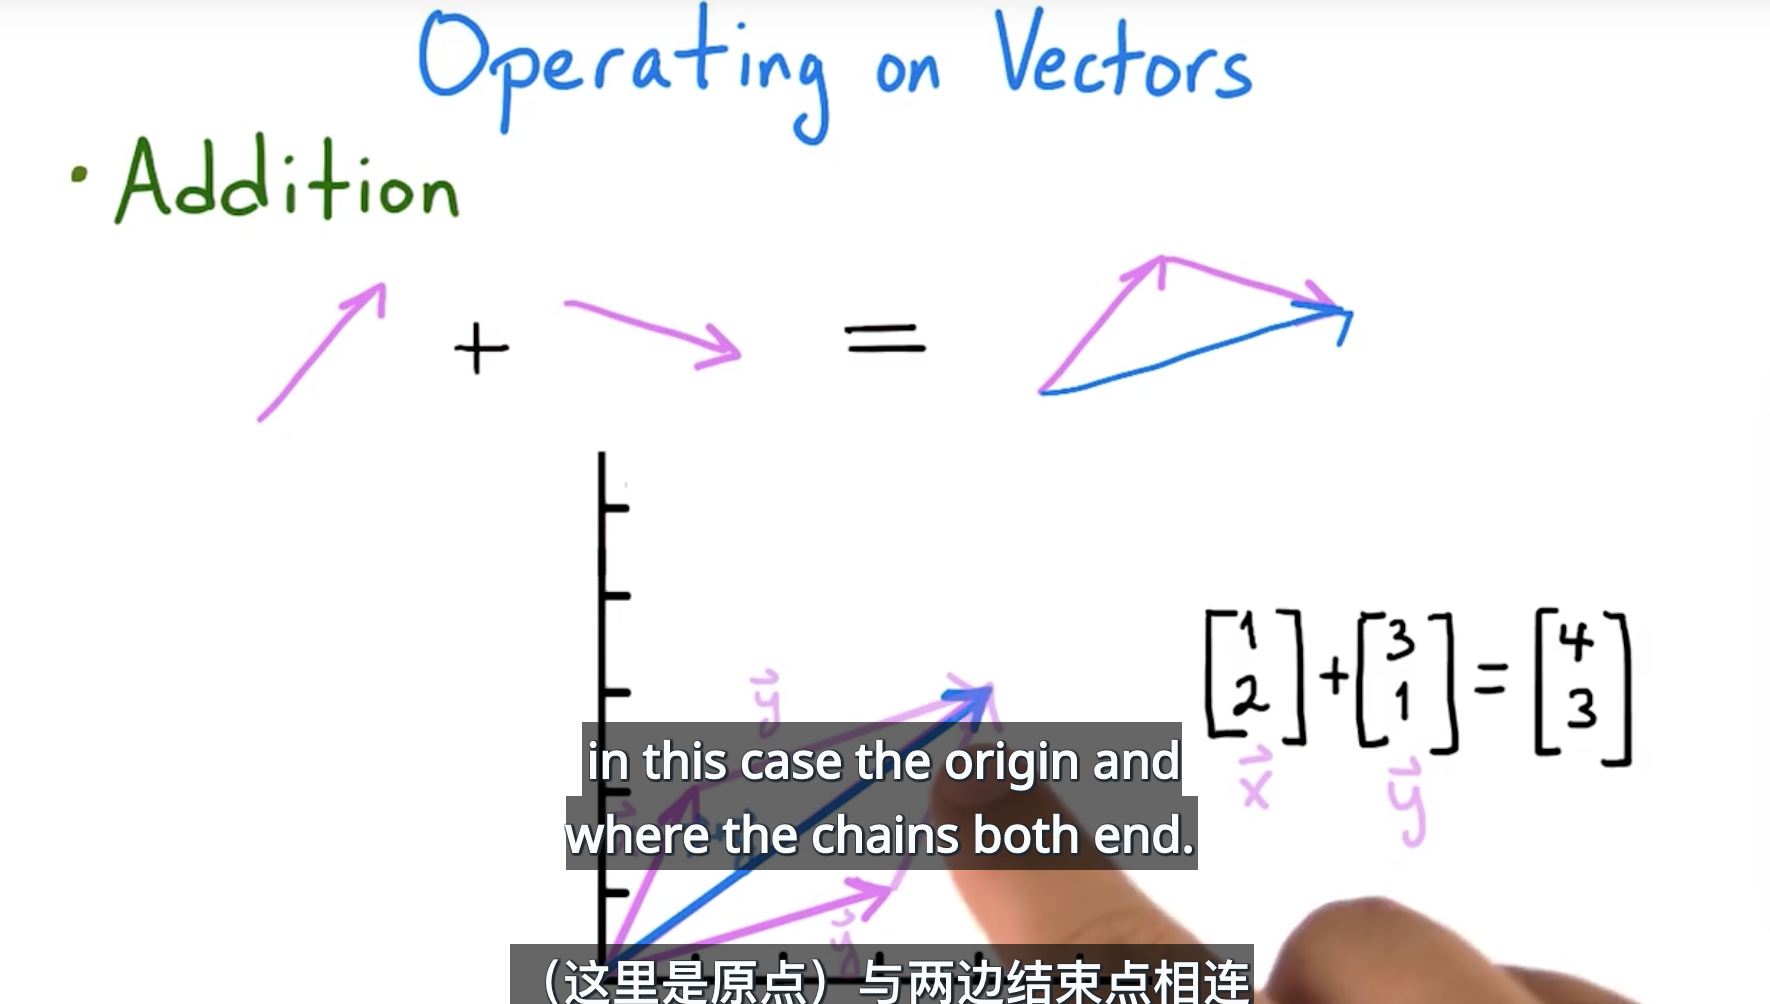 Operating on Vectors
• Addition
+ =
[1 2] + [3 1] = [4 3]
y⃗
x⃗ y⃗
in this case the origin and
where the chains both end.
y⃗
（这里是原点）与两边结束点相连